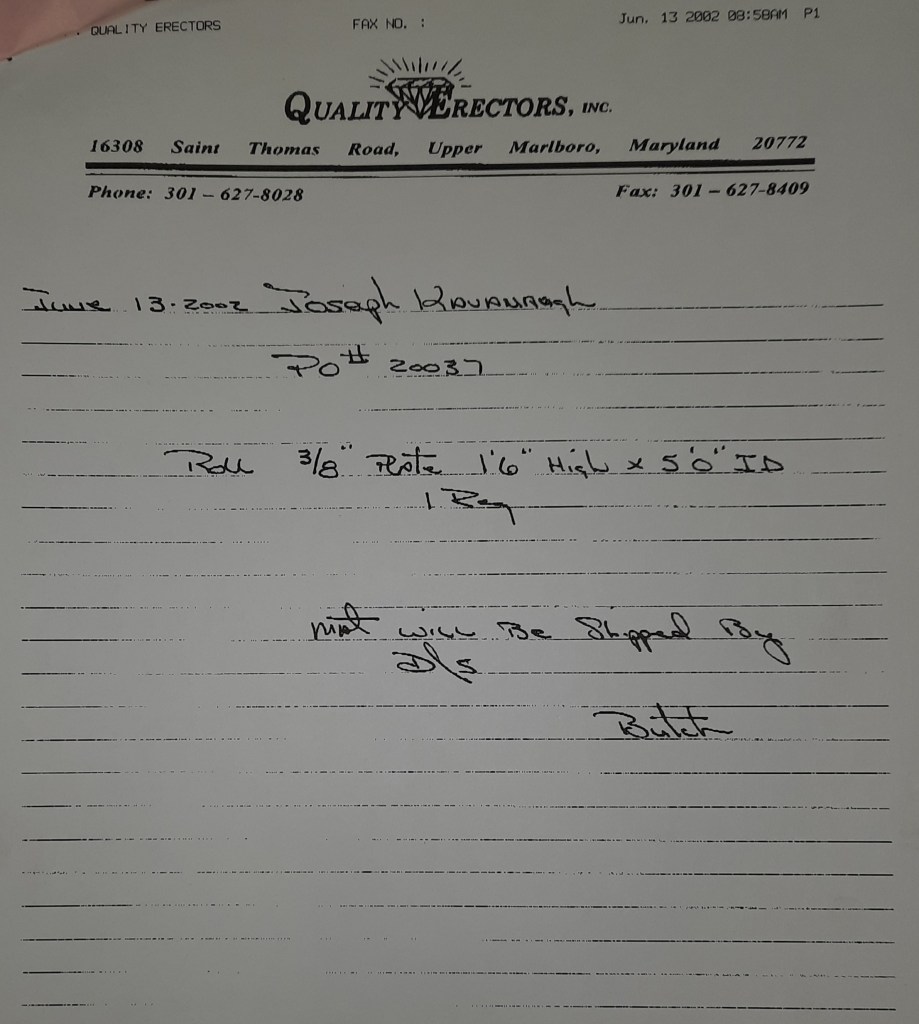 . QUALITY ERECTORS FAX NO. : Jun. 13 2002 08:58AM P1
QUALITY ERECTORS, INC.
16308 Saint Thomas Road, Upper Marlboro, Maryland 20772
Phone: 301 – 627-8028 Fax: 301 – 627-8409
June 13·2002 Joseph Kavanaagh
PO# 20037
Roll 3/8" Plate 1'6" High x 5'0" ID
1 Req
Mat will Be Shipped By
D/S
Butch